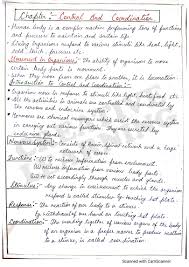 Chapter:- Control And Coordination
• Human body is a complex machine performing tons of functions
and process to maintain and certain life.
• Living organisms respond to various stimuli like heat, light,
cold, touch, pressure etc.
Movement in Organisms:- The ability of organisms to move
certain body parts is movement.
• When they move from one place to another, it is locomotion.
Introduction to Control and Coordination:-
• Organisms need to respond to stimuli like light, heat, food etc.
• All the activities in animals are controlled and coordinated by
the nervous and endocrine system.
• Hormones are chemical messengers which assist the nervous system
in carrying out various functions. They are secreted by
endocrine glands.
Nervous System:- Consists of brain, spinal cord and a large
network of nerves.
Functions:- (i) To receive information from environment.
(ii) To receive information from various body parts.
(iii) To act accordingly through muscles and glands.
Stimulus:- Any change in environment to which the
organism respond is called stimulus for touching hot plate.
Response:- The reaction of our body to a stimulus.
by withdrawal of our hand on touching hot plate.
Coordination:- The working together of various organs of the
body of an organism in a proper manner to produce reaction
to a stimulus, is called coordination.
Scanned with CamScanner